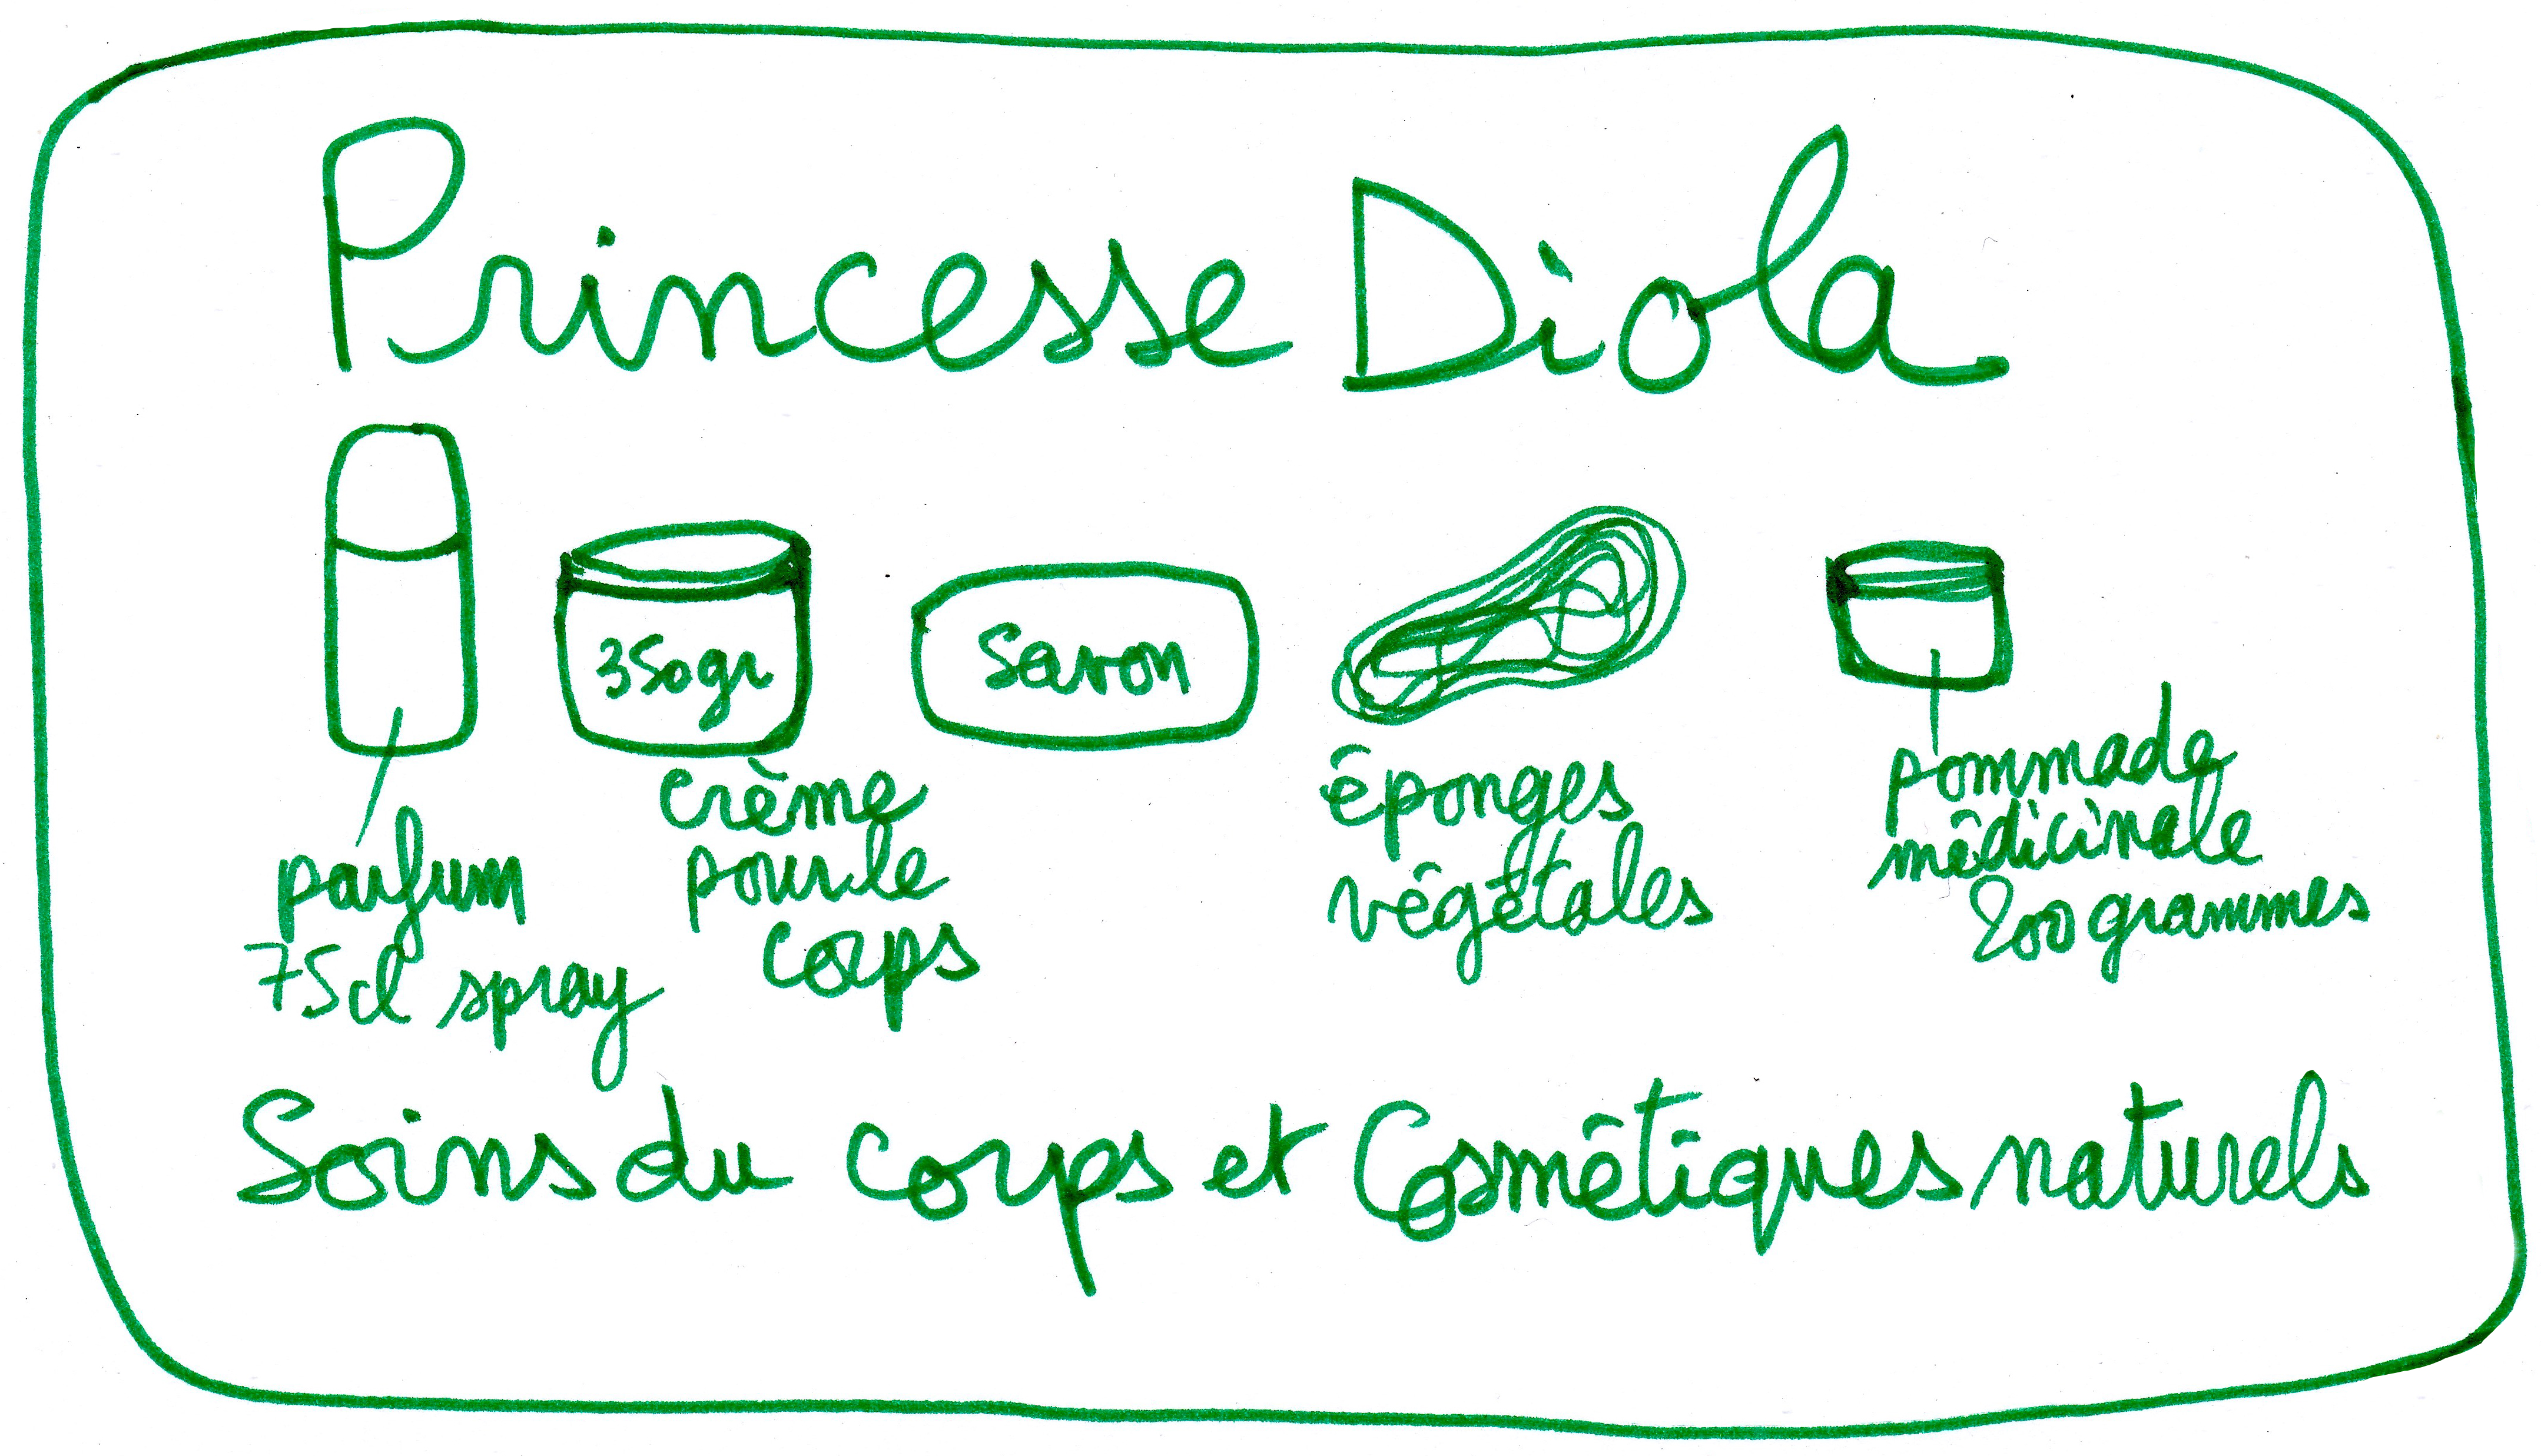 Princesse Diola
350gr
Savon
parfum
75cl spray
crème
pour le
corps
éponges
végétales
pommade
médicinale
200 grammes
Soins du corps et Cosmétiques naturels